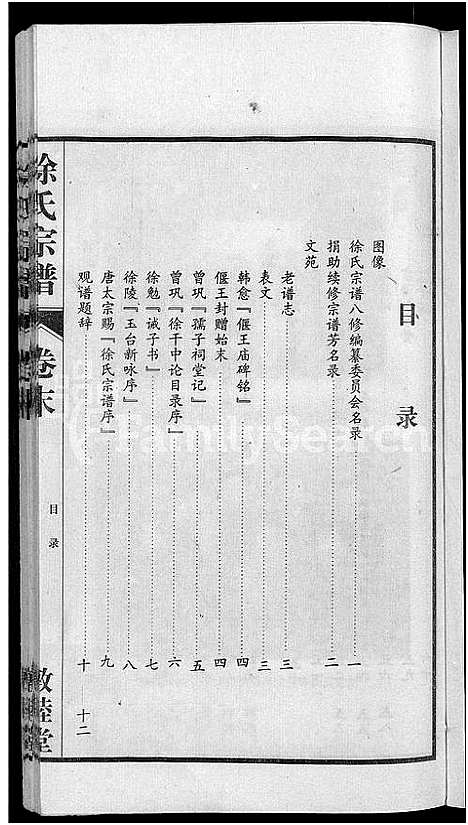 目录
图像
徐氏宗谱八修编纂委员会名录……一
捐助续修宗谱芳名录……二
文苑
老谱志……三
表文……三
韩愈『偃王庙碑铭』……四
偃王封赠始末……四
曾巩『孺子祠堂记』……五
曾巩『徐干中论目录序』……六
徐勉『诫子书』……七
徐陵『玉台新咏序』……八
唐太宗赐『徐氏宗谱序』……九
观谱题辞……十
徐氏宗谱
卷末
目录
十二
敦睦堂
FamilySearch